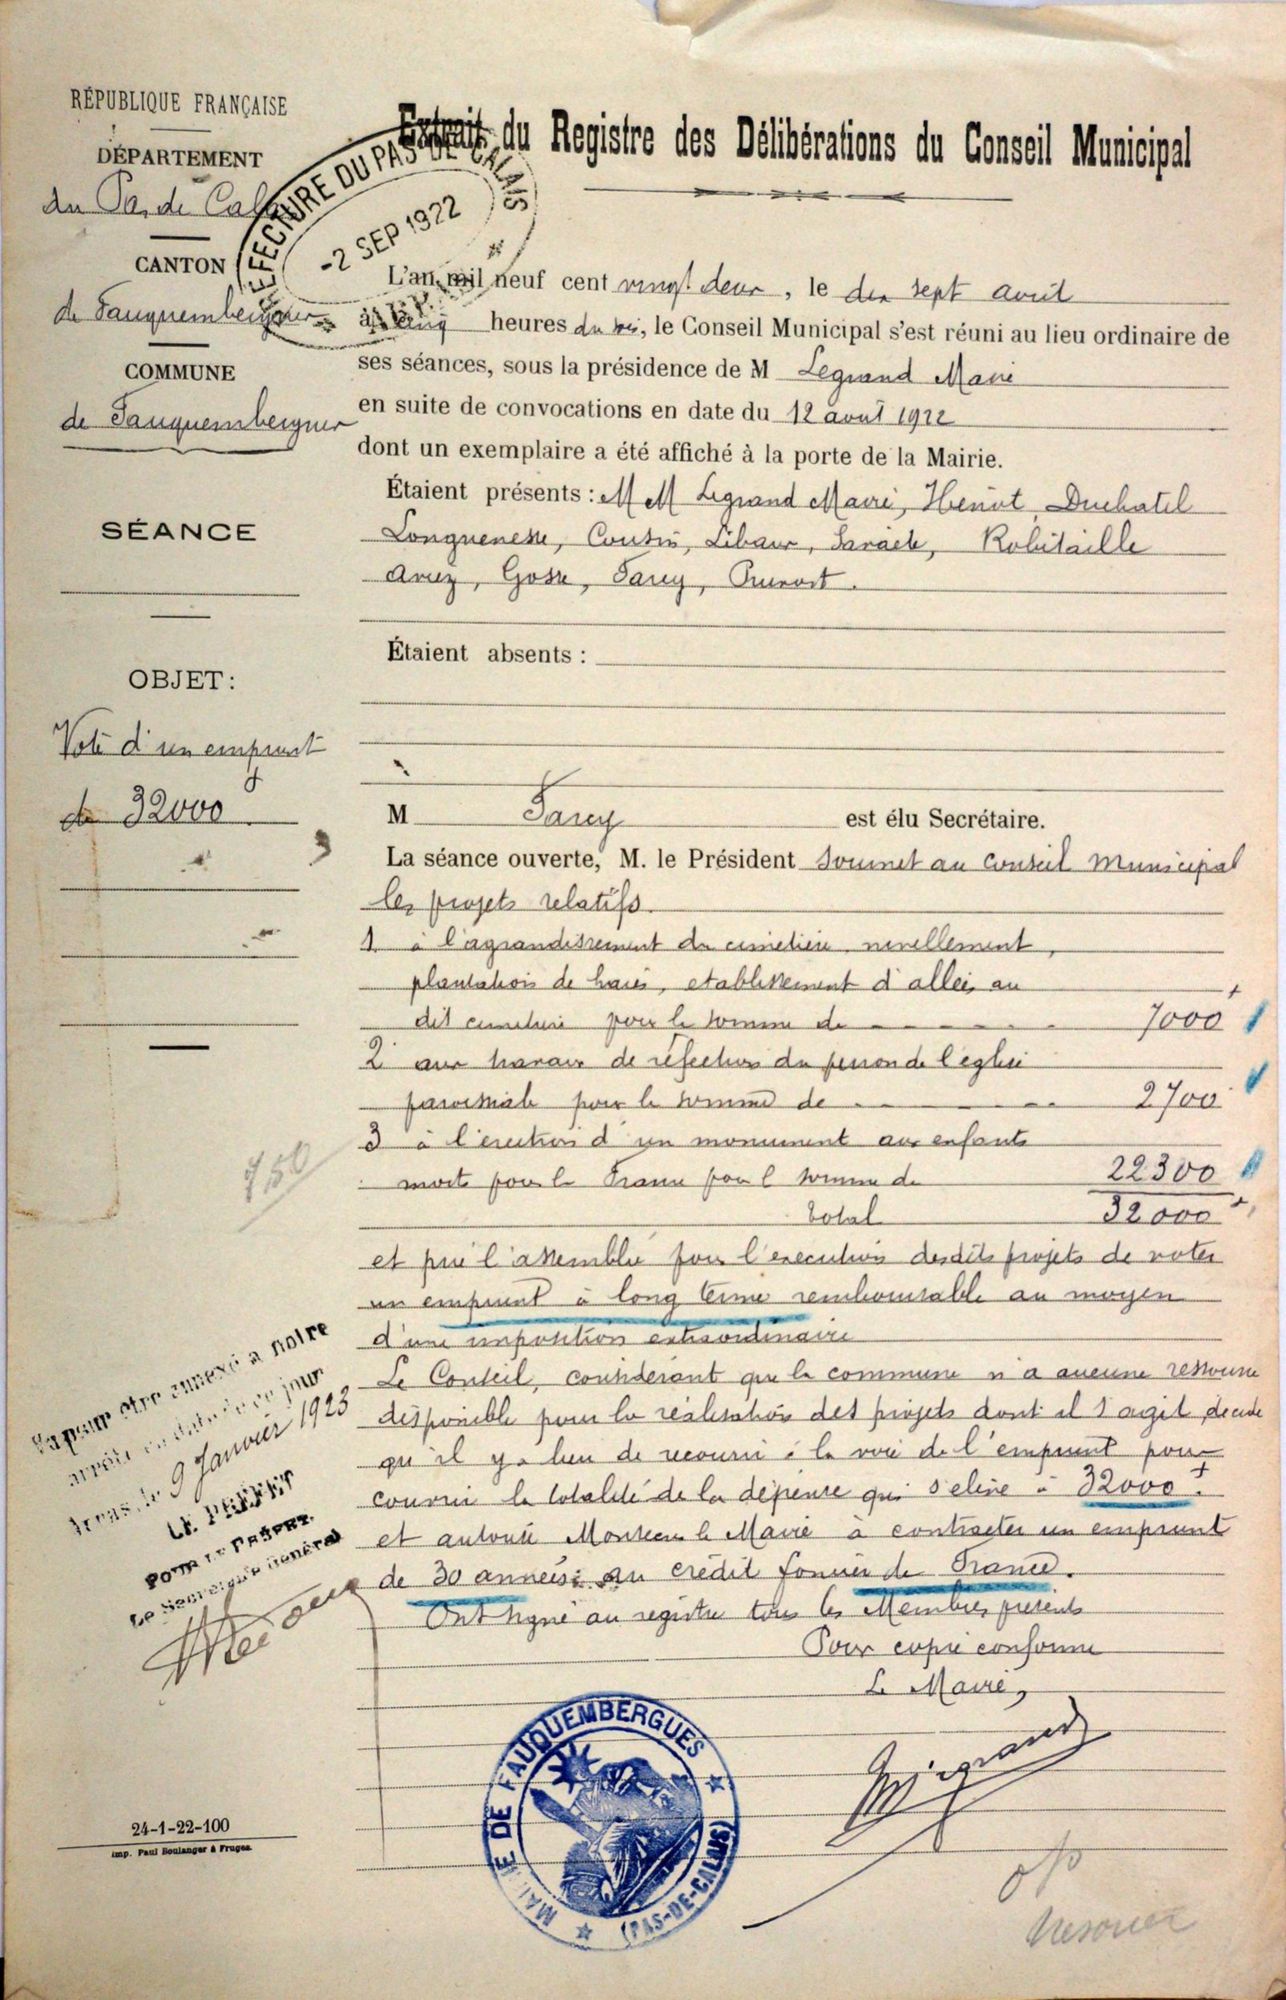 RÉPUBLIQUE FRANÇAISE
DÉPARTEMENT
du Pas de Calais
CANTON
de Fauquembergues
COMMUNE
de Fauquembergues
SÉANCE
OBJET :
Vote d'un emprunt
de 32000 f
750
Vu pour être annexé à notre
arrêté en date de ce jour
Arras, le 9 Janvier 1923
LE PRÉFET
POUR LE PRÉFET,
Le Secrétaire Général
24-1-22-100
Imp. Paul Boulanger à Fruges.
Extrait du Registre des Délibérations du Conseil Municipal
PRÉFECTURE DU PAS-DE-CALAIS
-2 SEP 1922
L'an mil neuf cent vingt deux, le dix sept avril
à cinq heures du soir, le Conseil Municipal s'est réuni au lieu ordinaire de
ses séances, sous la présidence de M Legrand Maire
en suite de convocations en date du 12 août 1922
dont un exemplaire a été affiché à la porte de la Mairie.
Étaient présents : MM Legrand Maire, Heniot, Duchatel
Longuenesse, Cousin, Libaux, Robitaille
Gosse, Tarcy, Pruvost.
Étaient absents :
M Tarcy est élu Secrétaire.
La séance ouverte, M. le Président soumet au Conseil Municipal
les projets relatifs
1 à l'agrandissement du cimetière, nivellement,
plantation de haies, etablissement d'allées au
dit cimetière pour la somme de 7000 f
2 aux travaux de réfection du perron de l'église
paroissiale pour la somme de 2700
3 à l'erection d'un monument aux enfants
morts pour la France pour l somme de 22300
total 32000 f
et prie l'assemblée pour l'execution desdits projets de voter
un emprunt à long terme remboursable au moyen
d'une imposition extraordinaire
Le Conseil, considerant que la commune n'a aucune ressource
disponible pour la réalisation des projets dont il s'agit, decide
qu'il y a lieu de recourir à la voie de l'emprunt pour
couvrir la totalité de la dépense qui s'elève à 32000 f
et autorise Monsieur le Maire à contracter un emprunt
de 30 années au crédit foncier de France.
Ont signé au registre tous les Membres présents
Pour copie conforme
Le Maire,
Legrand
MAIRIE DE FAUQUEMBERGUES
(PAS-DE-CALAIS)